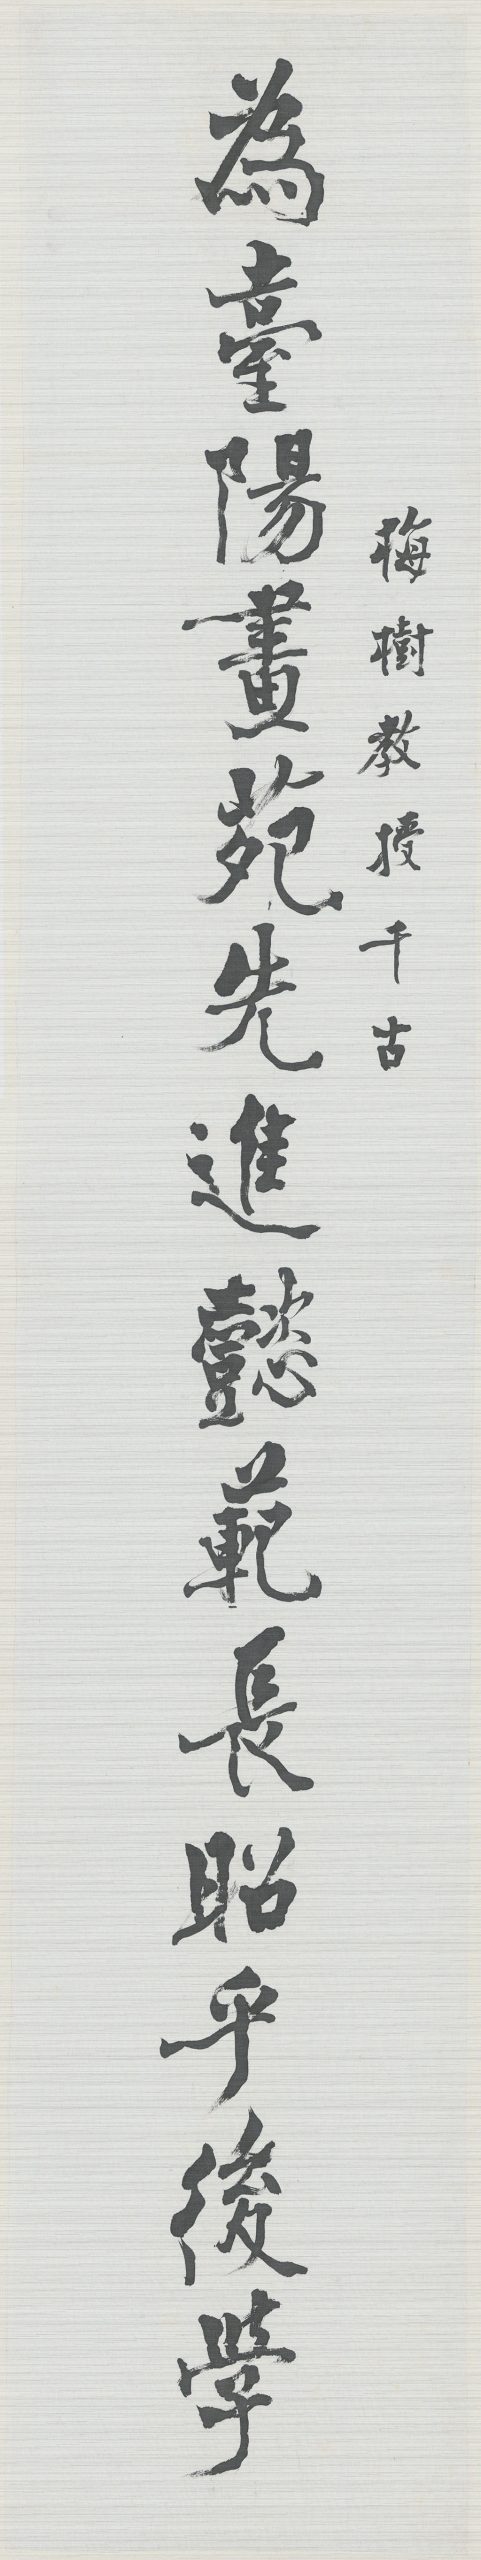 梅樹教授千古
為臺陽畫苑先進懿範長昭乎後學